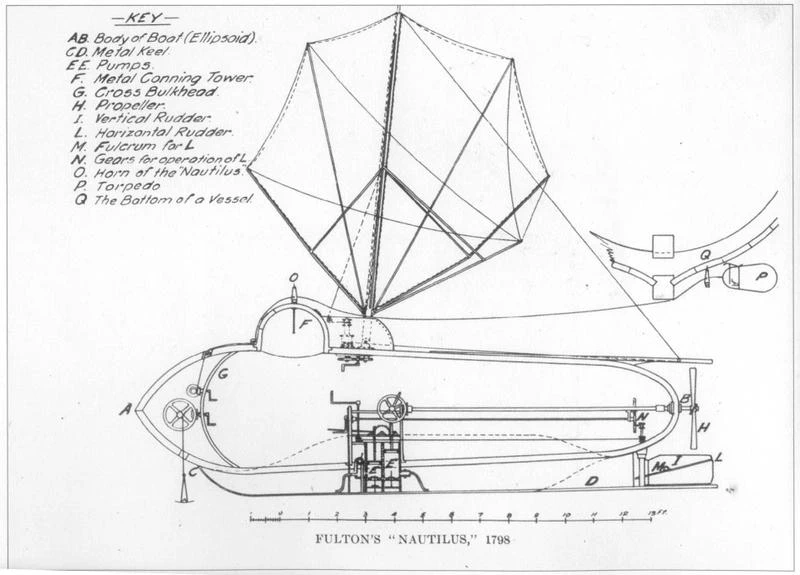 —KEY—
AB. Body of Boat (Ellipsoid).
CD. Metal Keel.
EE. Pumps.
F. Metal Conning Tower.
G. Cross Bulkhead.
H. Propeller.
I. Vertical Rudder.
L. Horizontal Rudder.
M. Fulcrum for L
N. Gears for operation of L
O. Horn of the "Nautilus."
P. Torpedo
Q The Bottom of a Vessel.
O
Q
P
F
G
A
B
N
H
E E
M I L
C
D
1 0 1 2 3 4 5 6 7 8 9 10 11 12 13 FT.
FULTON'S "NAUTILUS," 1798